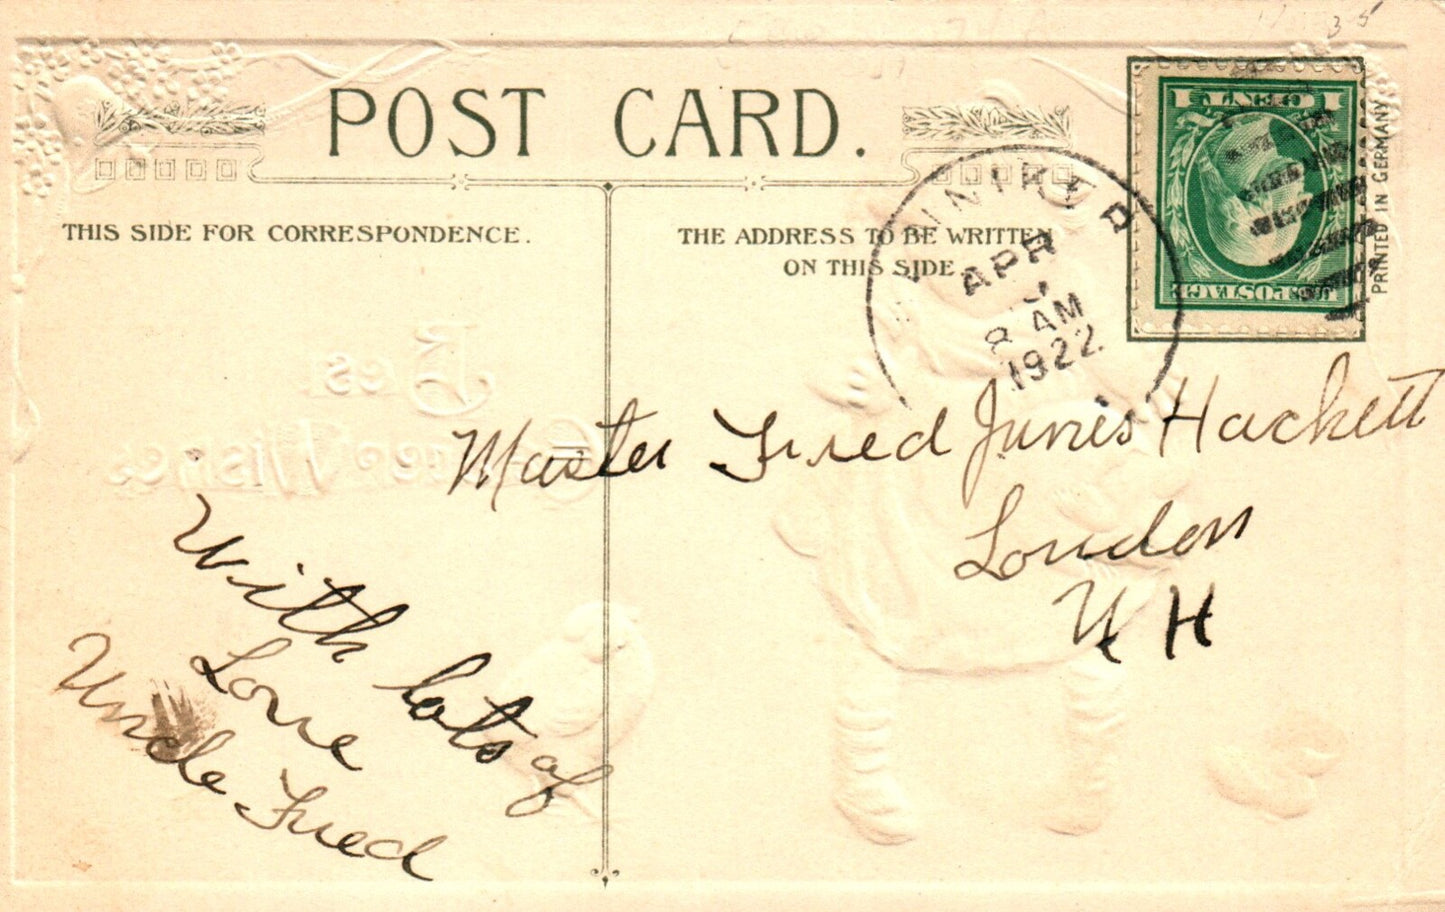 35
POST CARD.
THIS SIDE FOR CORRESPONDENCE.
THE ADDRESS TO BE WRITTEN
ON THIS SIDE.
APR
8 AM
1922
1 CENT 1
U.S. POSTAGE
PRINTED IN GERMANY
Best
Easter Wishes
Master Fred Junies Hackett
London
N H
With lots of
Love
Uncle Fred